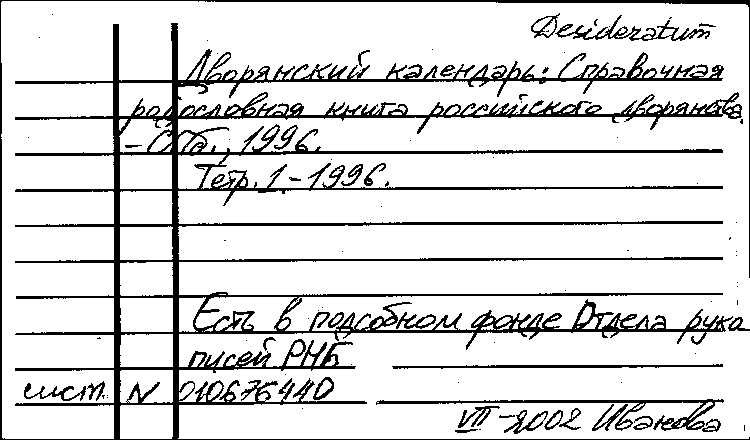 Desideratum
Дворянский календарь: Справочная
родословная книга российского дворянства.
- СПб., 1996.
Тетр. 1. - 1996.
Есть в подсобном фонде Отдела руко
писей РНБ
сист. N 010676440
VII - 2002 Иванова